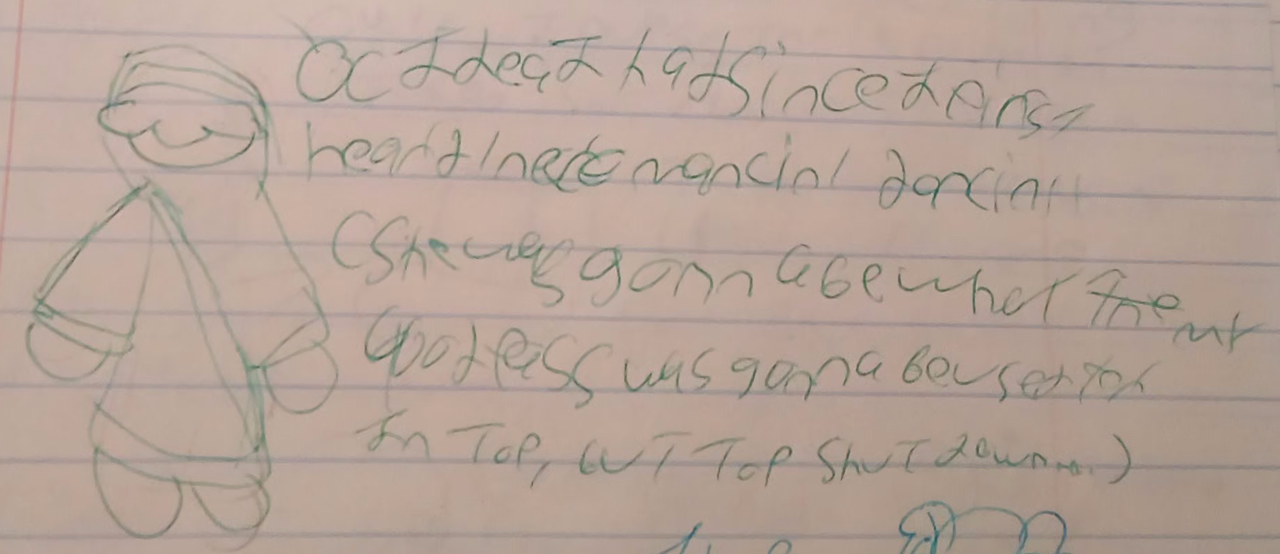 OC Idea I had Since I first
heard Necromancin' Dancin'!!
(She was gonna be what the
Goddess was gonna be used for
In TOP, but TOP Shut down...)